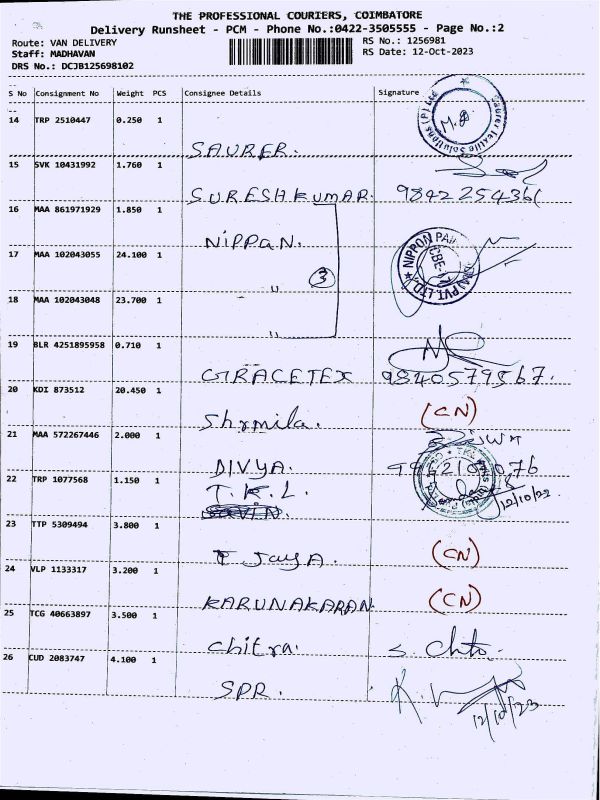 THE PROFESSIONAL COURIERS, COIMBATORE
Delivery Runsheet - PCM - Phone No.:0422-3505555 - Page No.:2
Route: VAN DELIVERY RS No.: 1256981
Staff: MADHAVAN RS Date: 12-Oct-2023
DRS No.: DCJB125698102
S No Consignment No Weight PCS Consignee Details Signature
14 TRP 2510447 0.250 1 SAURER.
15 SVK 10431992 1.760 1 SURESHKUMAR. 9842254361
16 MAA 861971929 1.850 1 NiPPaN.
17 MAA 102043055 24.100 1 〃 3
18 MAA 102043048 23.700 1 〃
19 BLR 4251895958 0.710 1 GRACETEX 9840579567.
20 KDI 873512 20.450 1 Shrmila. (CN)
21 MAA 572267446 2.000 1 DIVYA.
22 TRP 1077568 1.150 1 T.K.L. 12/10/22
23 TTP 5309494 3.800 1 Jaya. (CN)
24 VLP 1133317 3.200 1 KARUNAKARAN. (CN)
25 TCG 40663897 3.500 1 Chitra. S. Chto.
26 CUD 2083747 4.100 1 SPR. 12/10/23